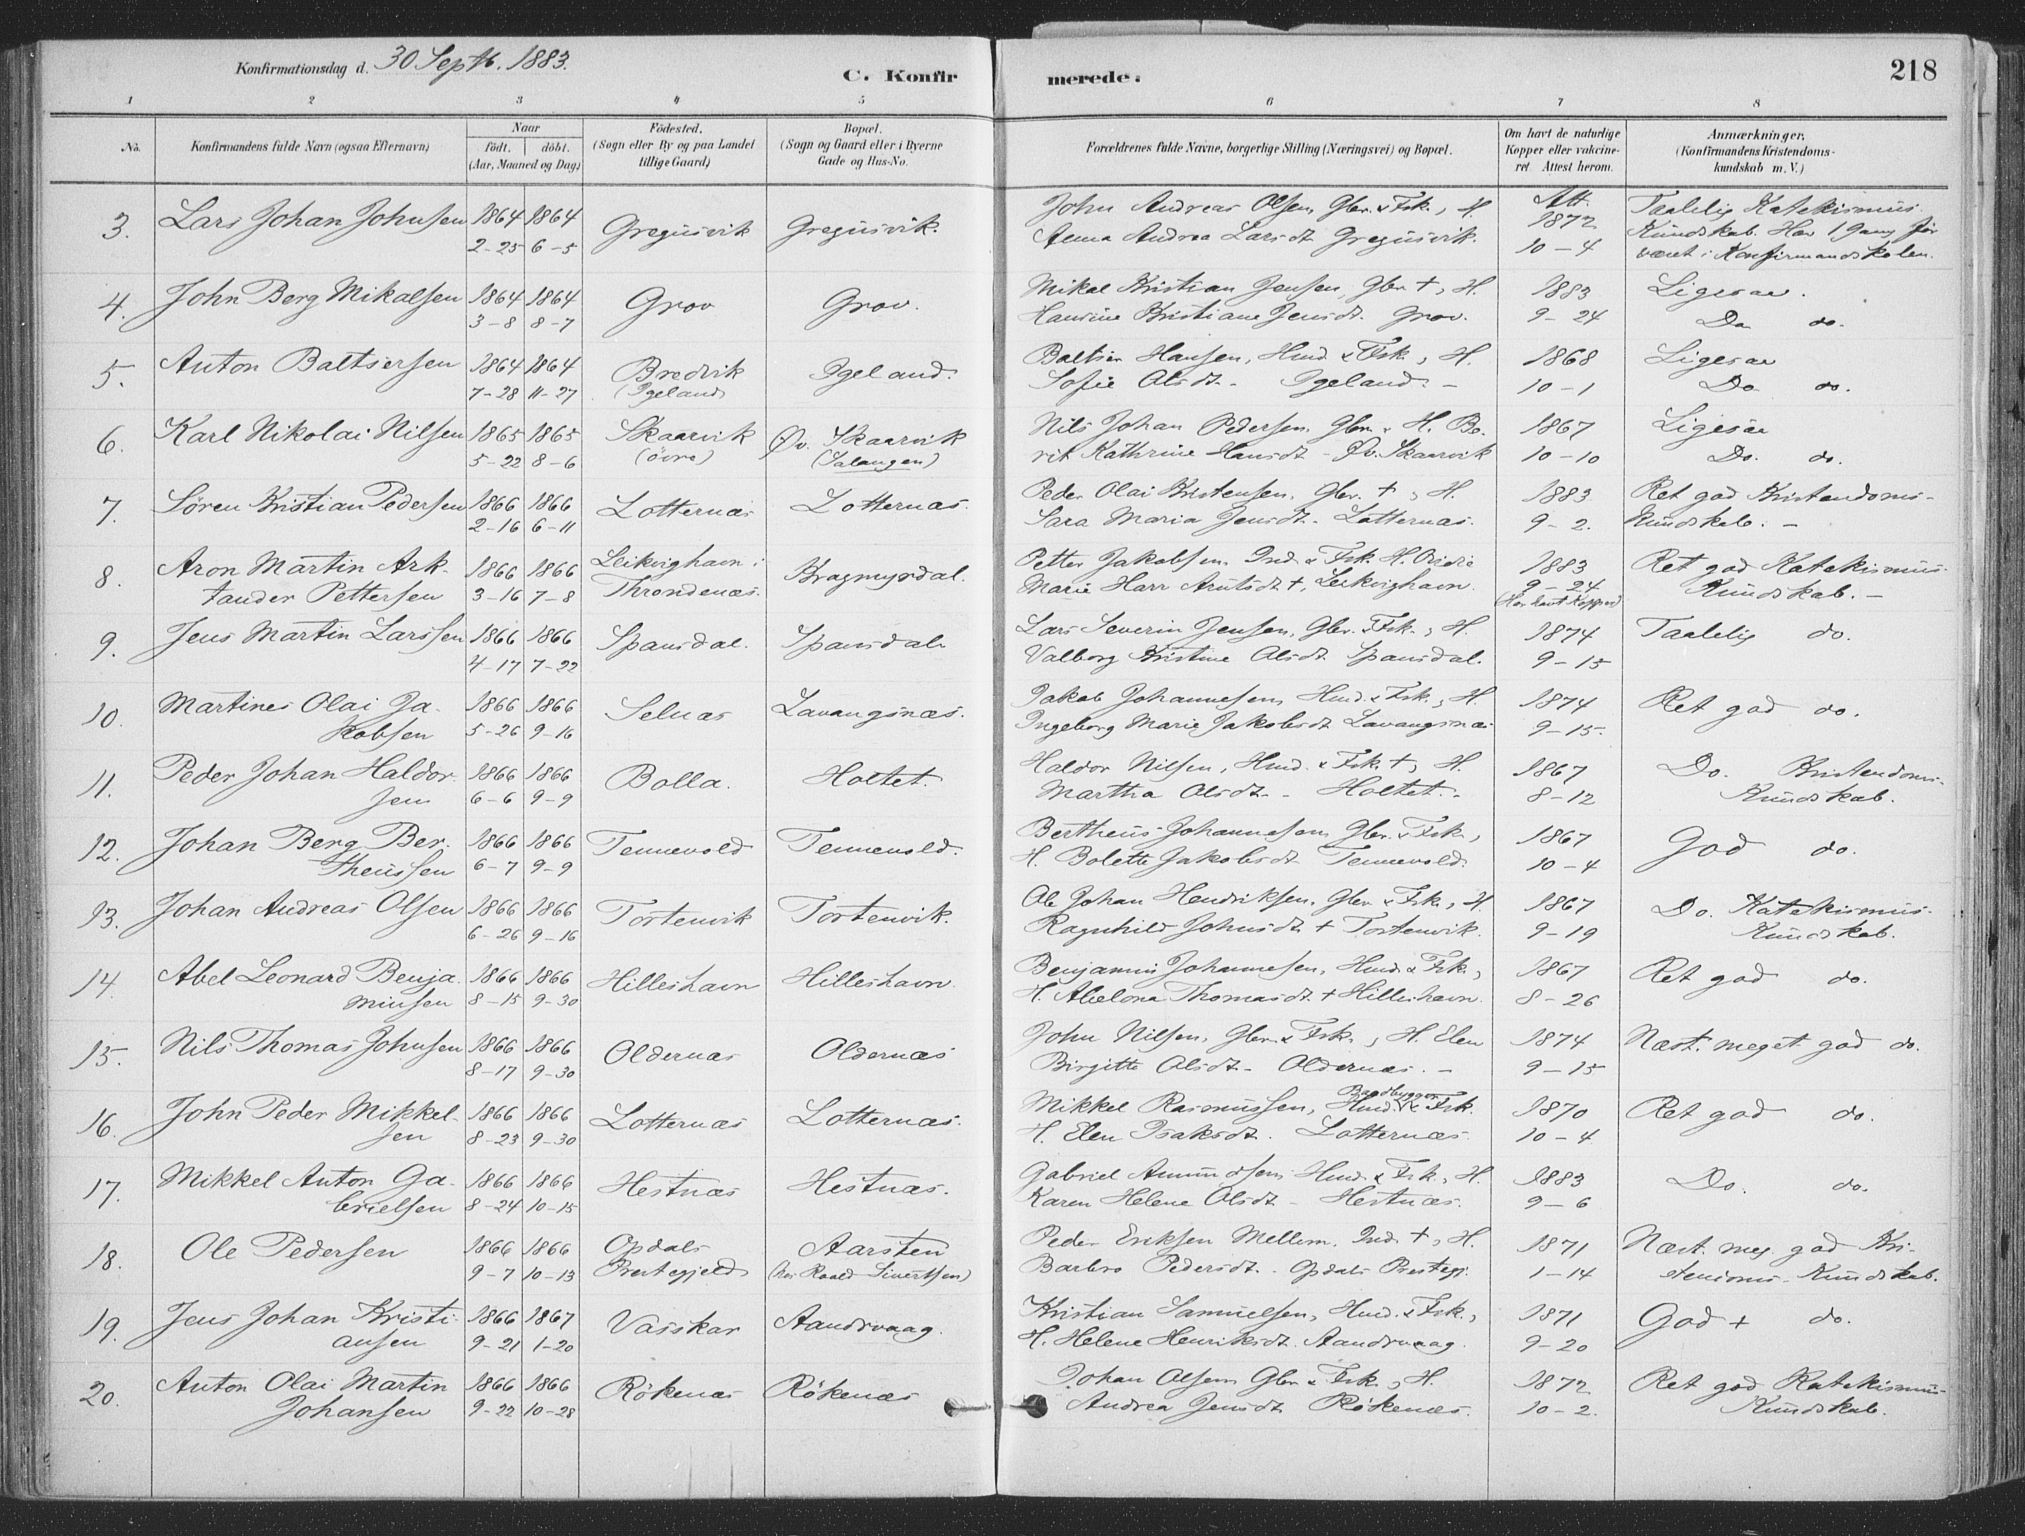 Konfirmationsdag d. 30 Septb. 1883.
C. Konfir
merede.
218
1 2 3 4 5 6 7 8
No.
Konfirmandens fulde Navn (ogsaa Efternavn)
Naar
født. døbt.
(Aar, Maaned og Dag)
Fødested.
(Sogn eller By og paa Landet
tillige Gaard)
Bopæl.
(Sogn og Gaard eller i Byerne
Gade og Hus-No.
Forældrenes fulde Navne, borgerlige Stilling (Næringsvei) og Bopæl.
Om havt de naturlige
Kopper eller vakcine-
ret Attest herom.
Anmærkninger,
(Konfirmandens Kristendoms-
kundskab m. V.)
3. Lars Johan Johnsen 1864 1864 Gregusvik Gregusvik. John Andreas Olsen, Gbr. & Fsk., H. Att. 1872 Taalelig Katekismus
2-25 6-5 Anna Andrea Larsdt Gregusvik. 10-4 Kundskab. Har 1 Gang før
været i Konfirmandskolen.
4. John Berg Mikalsen 1864 1864 Grov Grov. Mikal Kristian Jensen, Gbr. +, H. 1883 Ligesaa.
3-8 8-7 Hansine Kristiane Jensdt. Grov. 9-24 Do do.
5. Anton Baltsersen 1864 1864 Bredvik Igeland. Baltser Hansen, Hmd. & Fsk., H. 1868 Ligesaa
7-28 11-27 (Igeland) Sofie Olsdt - Igeland. - 10-1 Do do.
6. Karl Nikolai Nilsen 1865 1865 Skaarvik Øv. Skaarvik Nils Johan Pedersen, Gbr. & H. Be- 1867 Ligesaa
5-22 8-6 (øvre) (Salangen) rit Kathrine Hansdt - Øv. Skaarvik 10-10 Do. do.
7. Søren Kristian Pedersen 1866 1866 Lotternæs Lotternæs. Peder Olai Kristensen, Gbr. +, H. 1883 Ret god Kristendoms-
2-16 6-11 Sara Maria Jensdt. Lotternæs. 9-2. Kundskab. -
8. Aron Martin Ark- 1866 1866 Leikvighavn i Kragmyrdal. Petter Jakobsen Ind. & Fsk. H. 1883 Ret god Katekismus-
tander Pettersen 3-16 7-8 Throndenæs. Marie Harr Arntsdt +, Leikvighavn. 9-24 Kundskab. -
(Har havt Kopper)
9. Jens Martin Larssen 1866 1866 Spansdal. Spansdal Lars Severin Jensen, Gbr. & Fsk., H. 1874 Taalelig do.
4-17 7-22 Valborg Kristine Olsdt Spansdal. 9-15
10. Martines Olai Ja- 1866 1866 Selnæs Lavangsnæs. Jakob Johannesen, Hmd. & Fsk., H. 1874 Ret god do.
kobsen 5-26 9-16 Ingeborg Marie Jakobsdt Lavangsnæs 9-15.
11. Peder Johan Haldor- 1866 1866 Bolla. Holtet. Haldor Nilsen, Hmd. & Fsk. +, H. 1867 Do. Kristendoms-
sen 6-6 9-9 Martha Olsdt. - Holtet. - 8-12 Kundskab.
12. Johan Berg Ber- 1866 1866 Tennevold Tennevold. Bertheus Johannesen, Gbr. & Fsk., 1867 God do.
theussen 6-7 9-9 H. Bolette Jakobsdt Tennevold. 10-4
13. Johan Andreas Olsen 1866 1866 Tortenvik Tortenvik. Ole Johan Hendriksen, Gbr. & Fsk., H. 1867 Do. Katekismus-
6-26 9-16 Ragnhild Johnsdt + Tortenvik. 9-19 Kundskab.
14. Abel Leonard Benja- 1866 1866 Hilleshavn Hilleshavn. Benjamin Johannesen, Hmd. & Fsk., 1867 Ret god do.
minsen 8-15 9-30 H. Abelona Thomasdt + Hilleshavn. 8-26
15. Nils Thomas Johnsen 1866 1866 Oldernæs Oldernæs John Nilsen, Gbr. & Fsk., H. Elen 1874 Næst. meget god do.
8-17 9-30 Birgitte Olsdt - Oldernæs. - 9-15
16. John Peder Mikkel- 1866 1866 Lotternæs Lotternæs. Mikkel Rasmussen, Baadbygger Hmd. & Fsk. 1870 Ret god do.
sen 8-23 9-30 H. Elen Isaksdt. Lotternæs. 10-4
17. Mikkel Anton Ga- 1866 1866 Hestnæs Hestnæs. Gabriel Amundsen, Hmd. & Fsk., H. 1883 Do. do.
brielsen 8-24 10-15 Karen Helene Olsdt - Hestnæs. 9-6
18. Ole Pedersen 1866 1866 Opdals Aarsten Peder Eriksen Mellem, Ind. +, H. 1871 Næst. meg. god Kri-
9-7 10-13 Prestegjeld (hos Roald Sivertsen) Barbro Pedersdt. Opdals Prestegj. 1-14 stendoms-Kundskab.
19. Jens Johan Kristi- 1866 1867 Vasskar Aandsvaag. Kristian Samuelsen, Hmd. & Fsk., 1871 God + do.
ansen 9-21 1-20 H. Helene Henriksdt. Aandsvaag. 9-20
20. Anton Olai Martin 1866 1866 Røkenæs Røkenæs Johan Olsen, Gbr. & Fsk., H. 1872 Ret god Katekismus-
Johansen 9-22 10-28 Andrea Jensdt Røkenæs. 10-2. Kundskab.